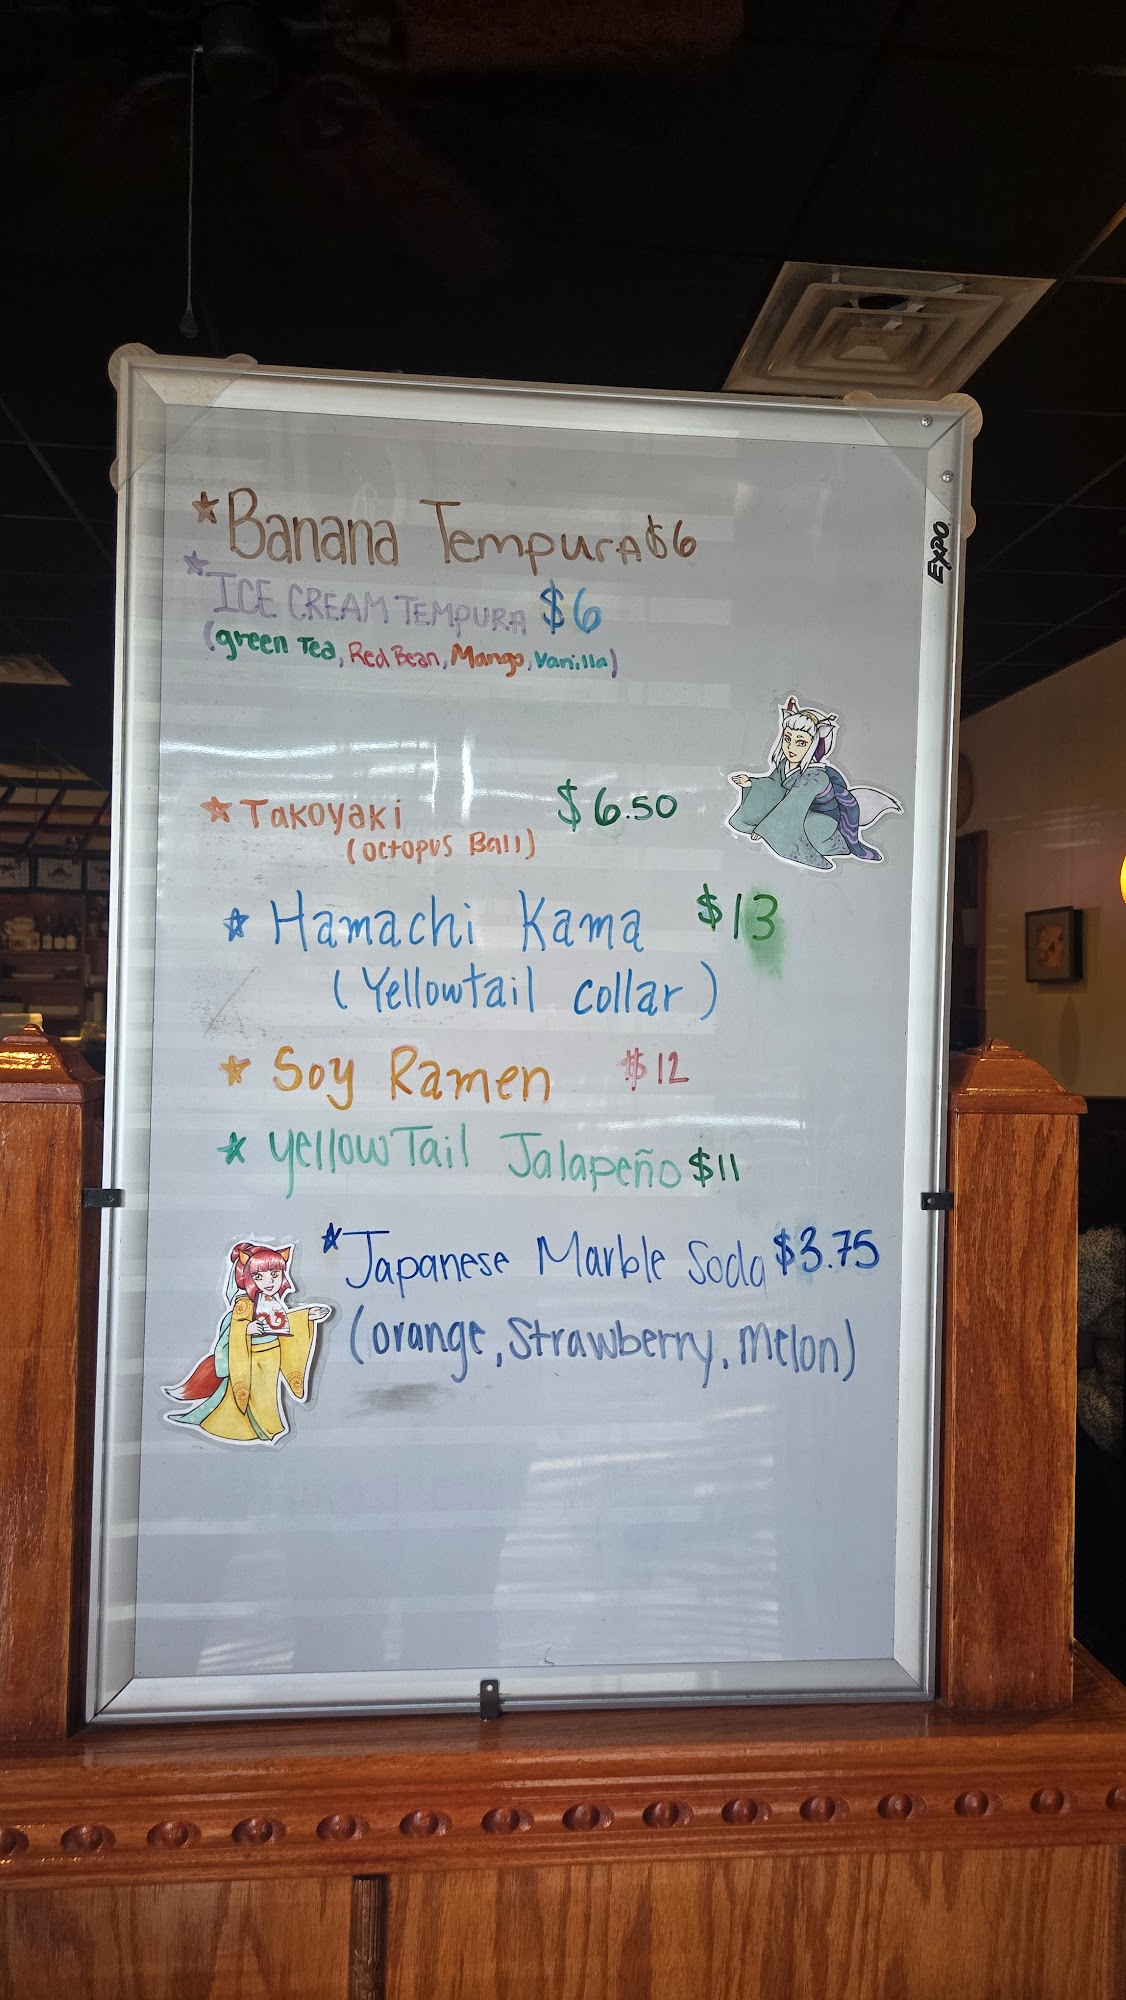 *Banana Tempura $6
*ICE CREAM TEMPURA $6
(green Tea, Red Bean, Mango, Vanilla)
*Takoyaki $6.50
(octopus Ball)
*Hamachi Kama $13
(Yellowtail collar)
*Soy Ramen $12
*yellowTail Jalapeño $11
*Japanese Marble Soda $3.75
(orange, Strawberry, Melon)
EXPO